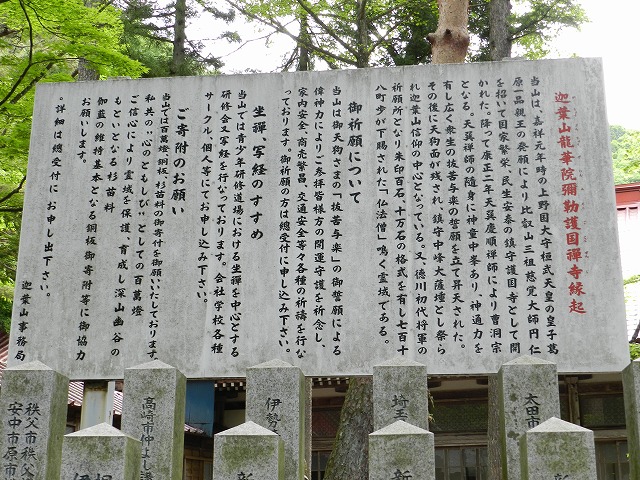 迦葉山龍華院彌勒護国禅寺縁起
当山は、嘉祥元年時の上野国大守桓武天皇の皇子葛
原一品親王の発願により比叡山三祖慈覚大師円仁
を招いて国家繁栄、民生安泰の鎮守護国寺として開
かれた。降って康正二年天巽慶順禅師により曹洞宗
となる。天巽禅師の随身に神童中峯あり、神通力を
有し広く衆生の抜苦与楽の誓願を立て昇天された。
その後に天狗面が残され、鎮守中峰大薩埵とし祭ら
れ迦葉山信仰の中心となっている。又、徳川初代将軍の
祈願所となり朱印百石、十万石の格式を有し七百十
八町歩が下賜された「仏法僧」鳴く霊域である。
御祈願について
当山は御天狗さまの「抜苦与楽」の御誓願による
偉神力によりご参拝皆様方の開運守護を祈念し、
家内安全、商売繁昌、交通安全等々各種の祈祷を行な
っております。御祈願の方は総受付に申し込み下さい。
坐禅 写経のすすめ
当山では青少年研修道場における坐禅を中心とする
研修会又写経を行なっております。会社学校各種
サークル、個人等にてお申し込み下さい。
ご寄附のお願い
当山では百萬燈、銅板、杉苗料の御寄付を御願いいたしております。
私共の“心のともしび”としての百萬燈
ご信心により霊域を保護、育成し深山幽谷の
もといとなる杉苗料
伽藍の維持基本となる銅板御寄附等に御協力
お願いします。
・詳細は総受付にお申し出下さい。
迦葉山事務局
太田市
埼玉
伊勢
高崎市仲よし
秩父市秩父
安中市原市
新
新